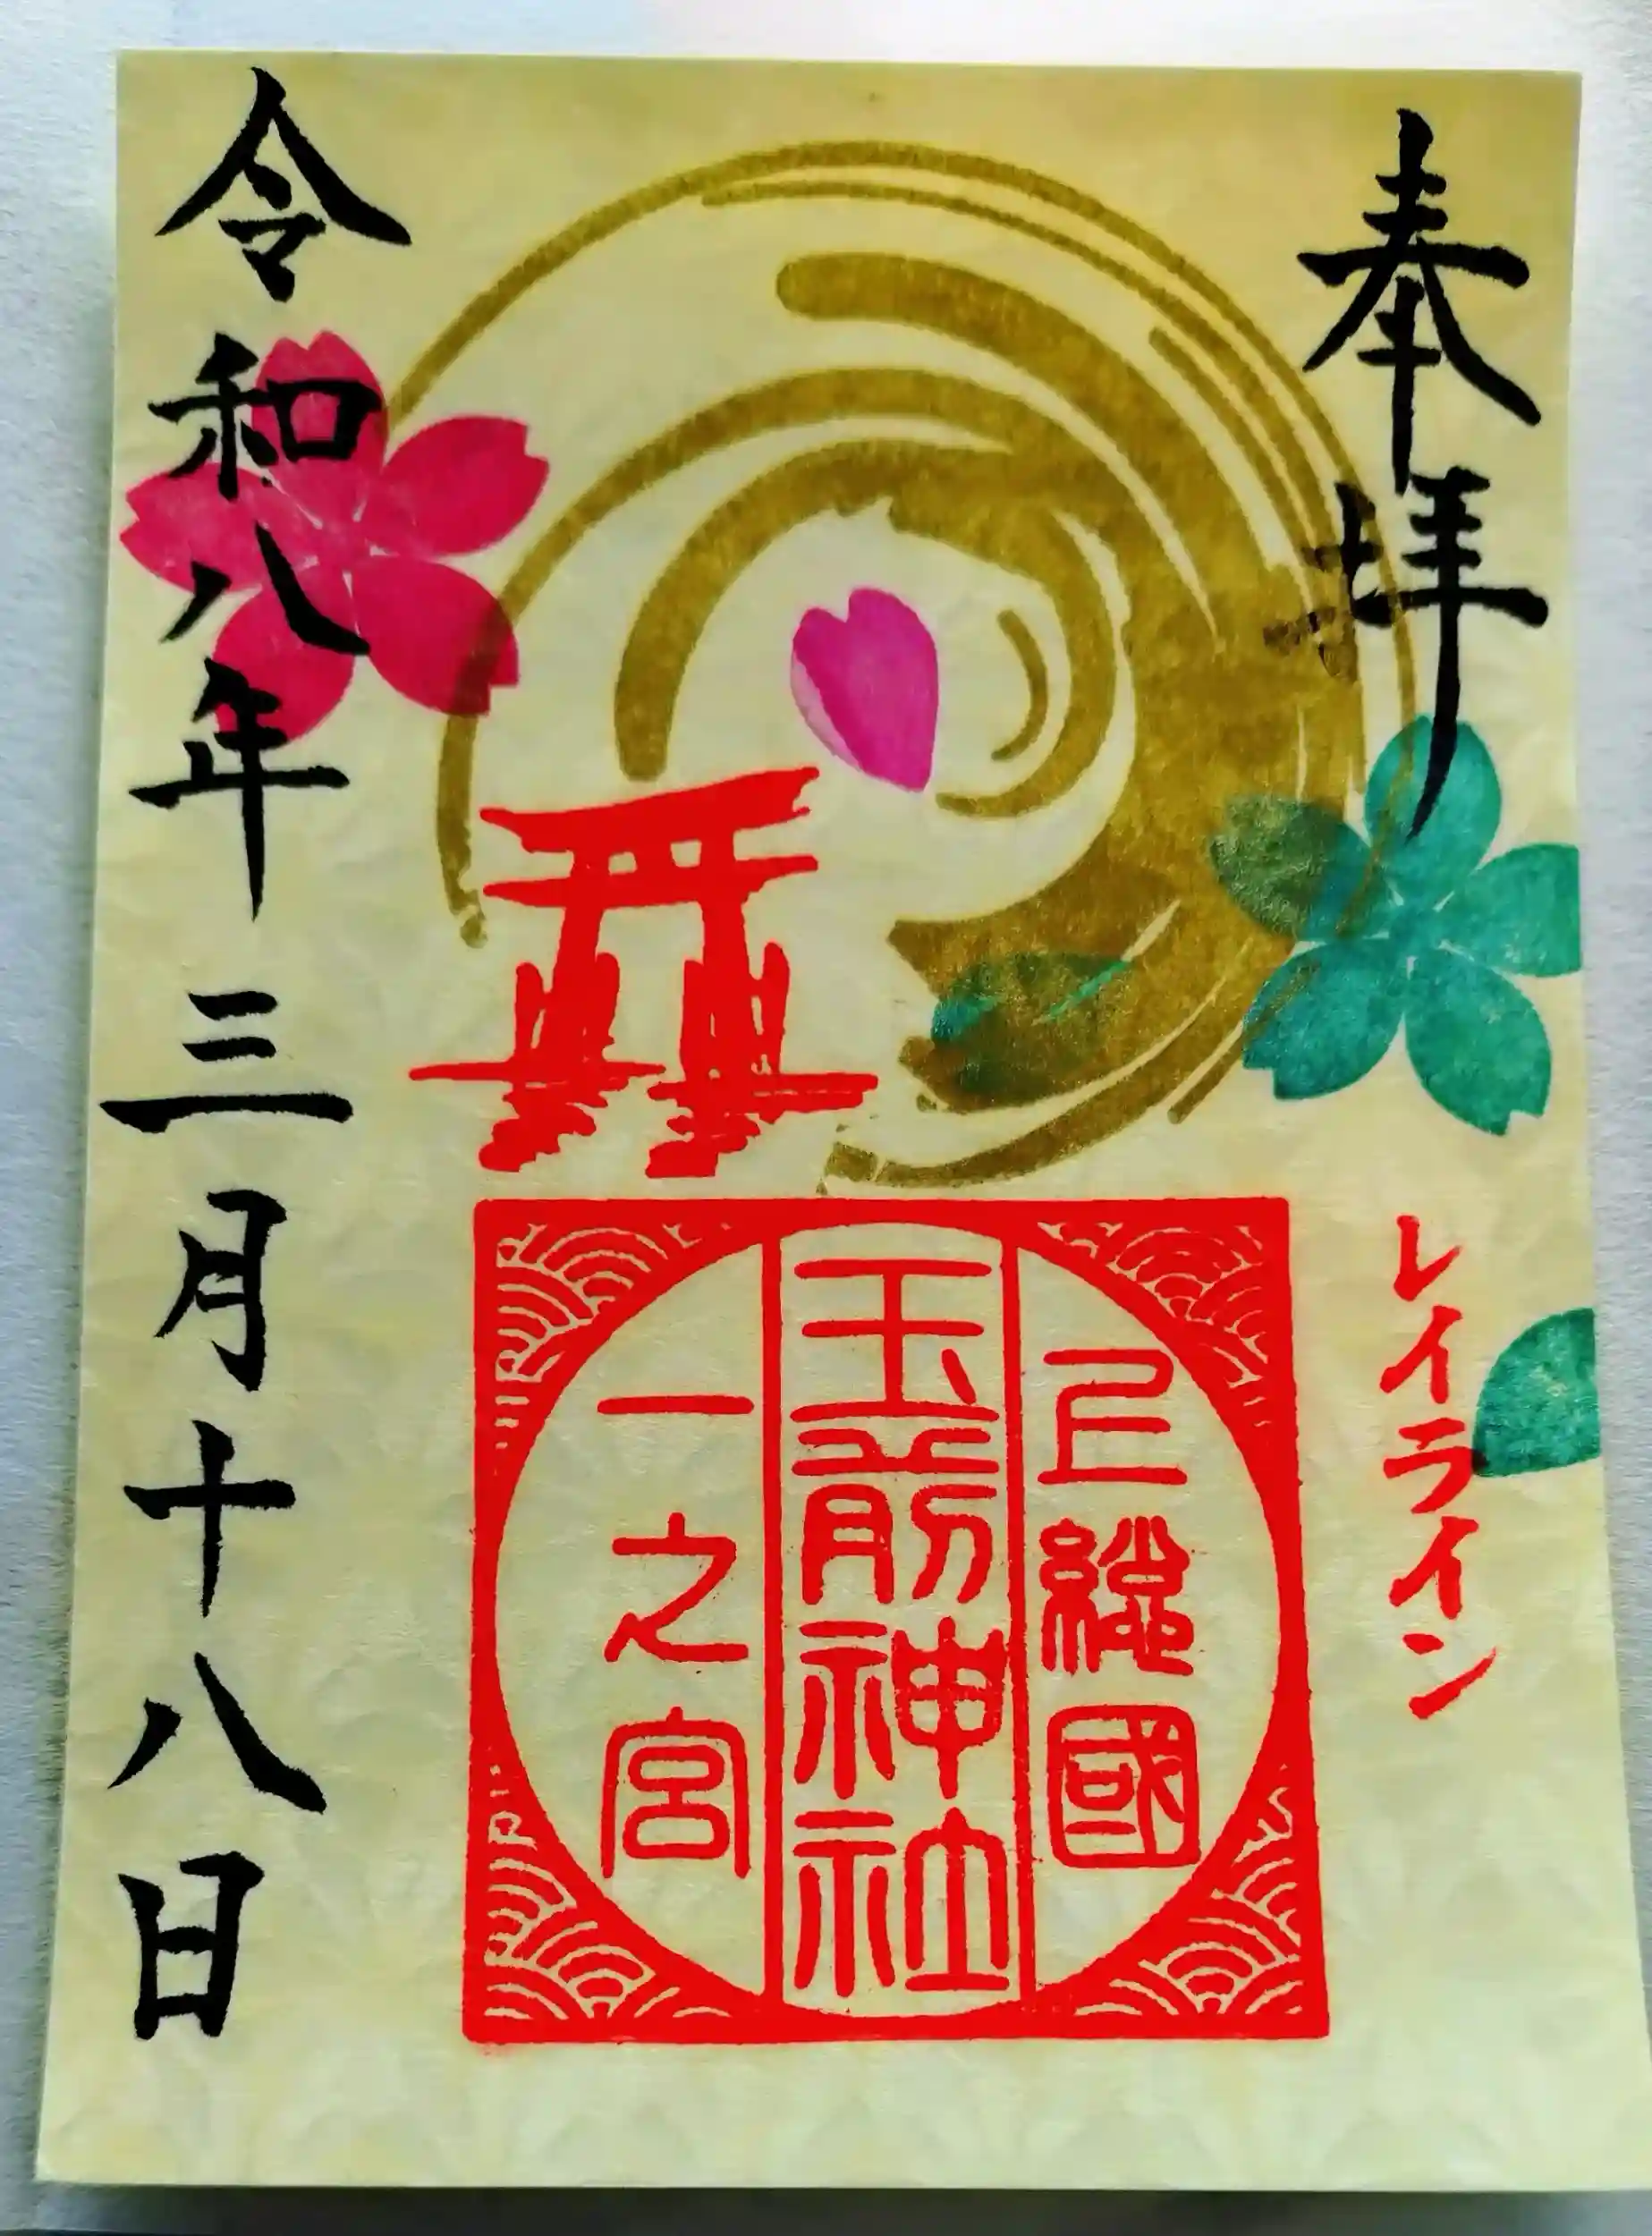 奉拝
レイライン
上総國
玉前神社
一之宮
令和八年三月十八日